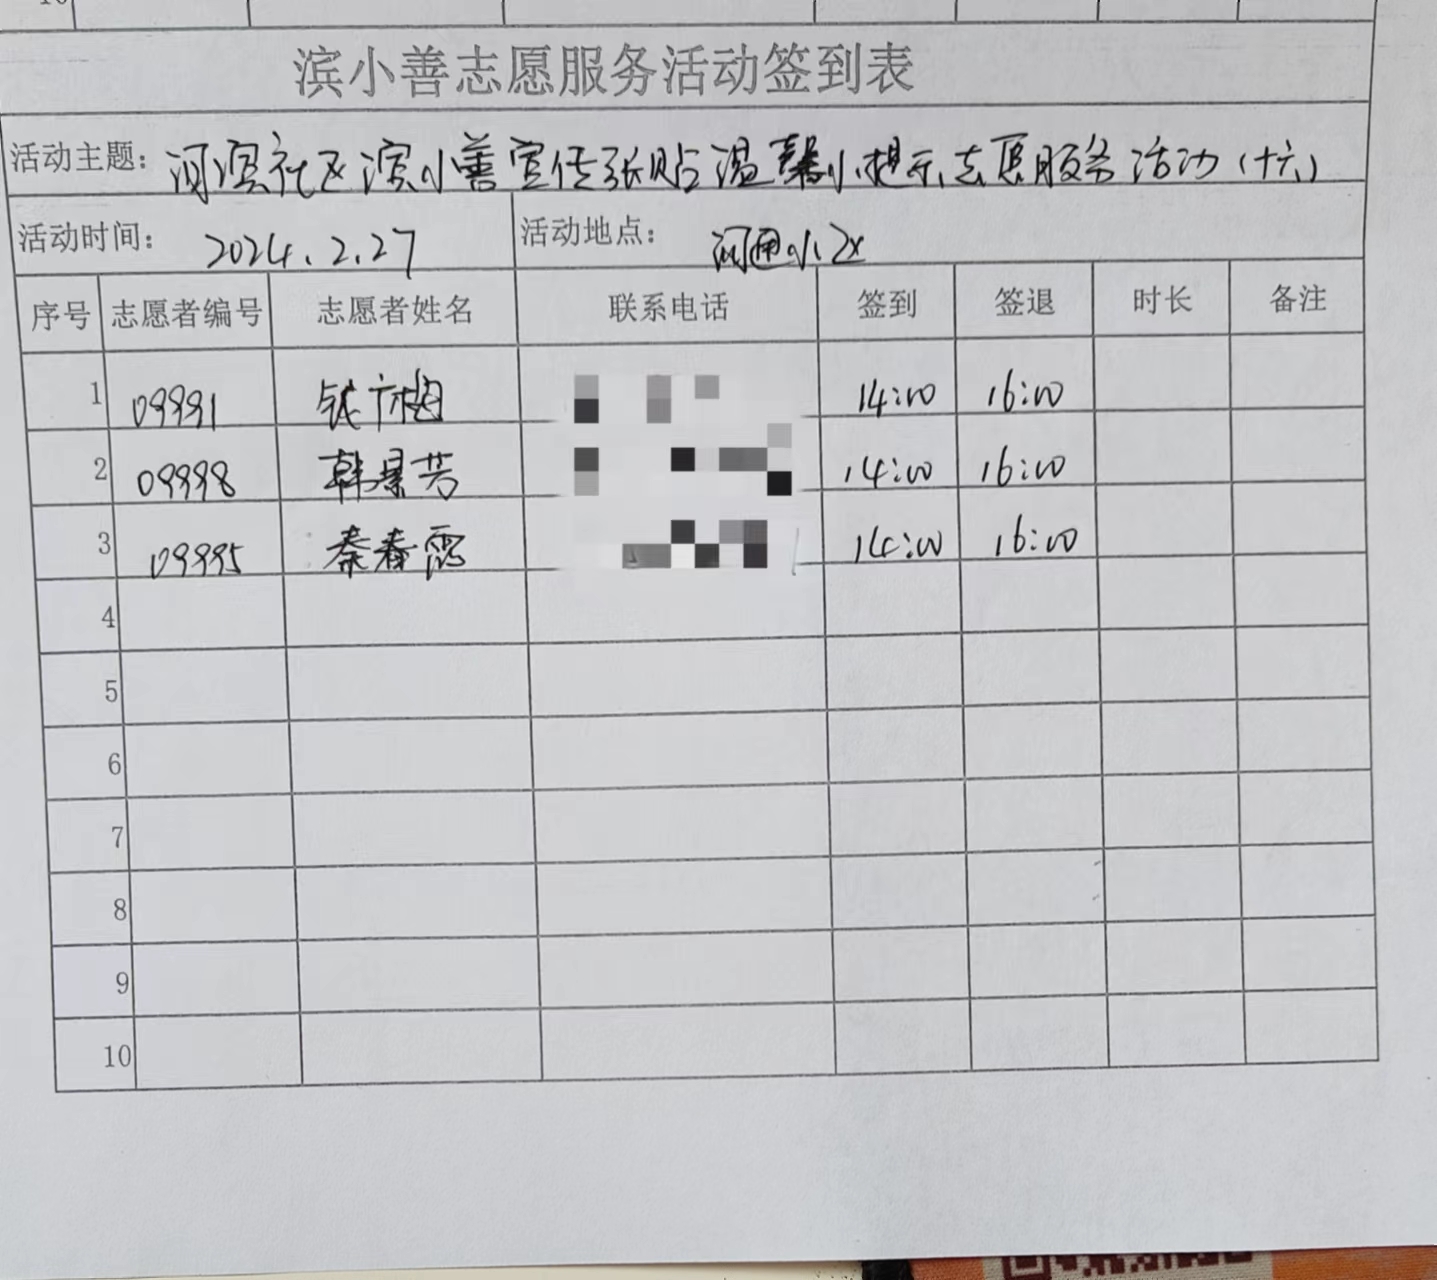 滨小善志愿服务活动签到表
活动主题： 河滨社区滨小善宣传张贴温馨小提示志愿服务活动（十六）
活动时间： 2024.2.27 活动地点： 河通小区
序号 志愿者编号 志愿者姓名 联系电话 签到 签退 时长 备注
1 09991 钱广梅 14:00 16:00
2 09998 韩景芳 14:00 16:00
3 09995 秦春霞 14:00 16:00
4
5
6
7
8
9
10